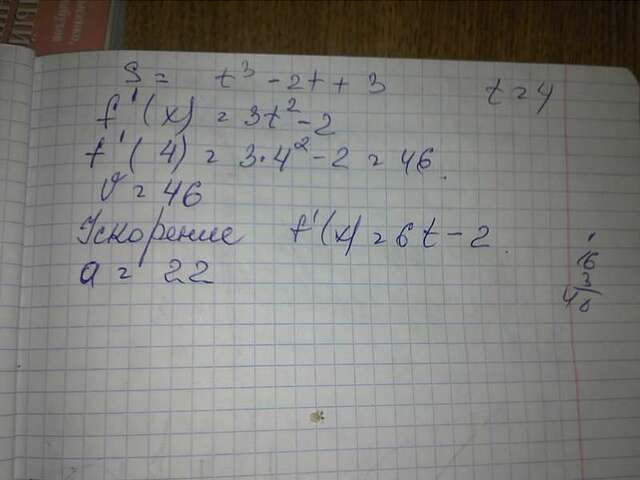 S = t³ - 2t + 3 t = 4
f'(x) = 3t² - 2
f'(4) = 3·4² - 2 = 46.
υ = 46
Ускорение f'(x) = 6t - 2.
a = 22
1
16
3
48